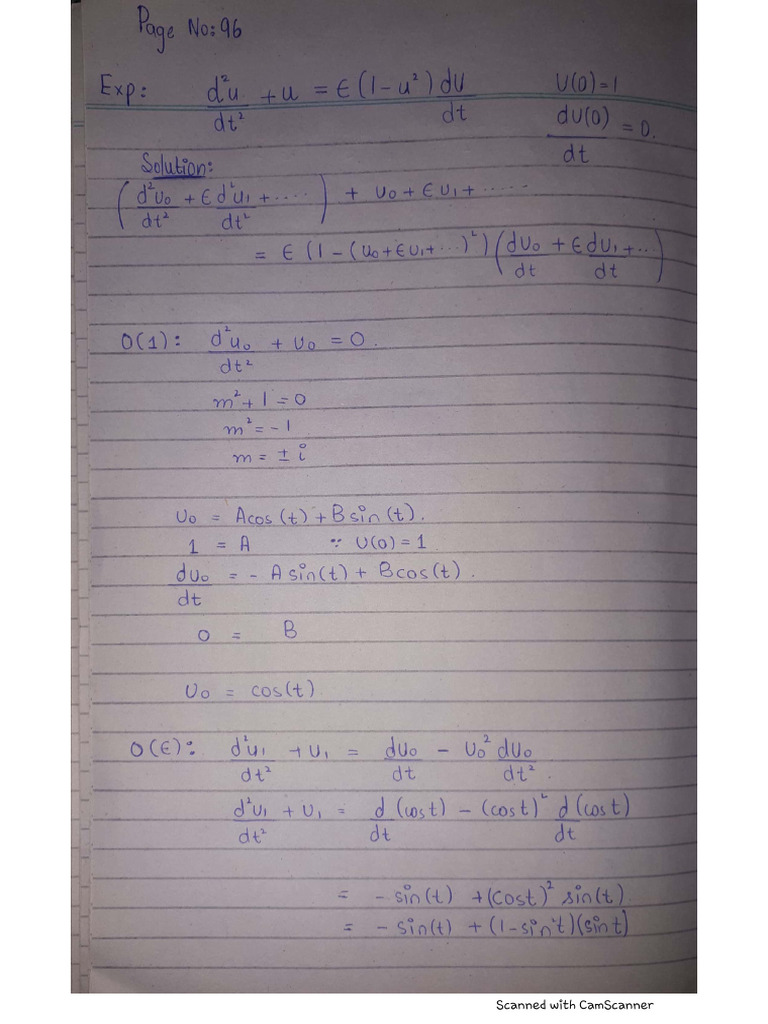 Page No: 96
Exp: d²u/dt² + u = ϵ (1-u²) du/dt U(0)=1
dU(0)/dt = 0.
Solution:
(d²u₀/dt² + ϵ d²u₁/dt² + ....) + u₀ + ϵu₁ + .....
= ϵ (1-(u₀+ϵu₁+...)²) (du₀/dt + ϵ du₁/dt + ..)
O(1): d²u₀/dt² + u₀ = 0.
m²+1 = 0
m² = -1
m = ± i
u₀ = Acos(t) + B sin(t).
1 = A ∵ U(0) = 1
du₀/dt = - A sin(t) + B cos(t).
0 = B
u₀ = cos(t)
O(ϵ): d²u₁/dt² + u₁ = du₀/dt - u₀² du₀/dt².
d²u₁/dt² + u₁ = d/dt (cost) - (cost)² d(cost)/dt
= - sin(t) + (cost)² sin(t)
= - sin(t) + (1-sin²t)(sint)
Scanned with CamScanner